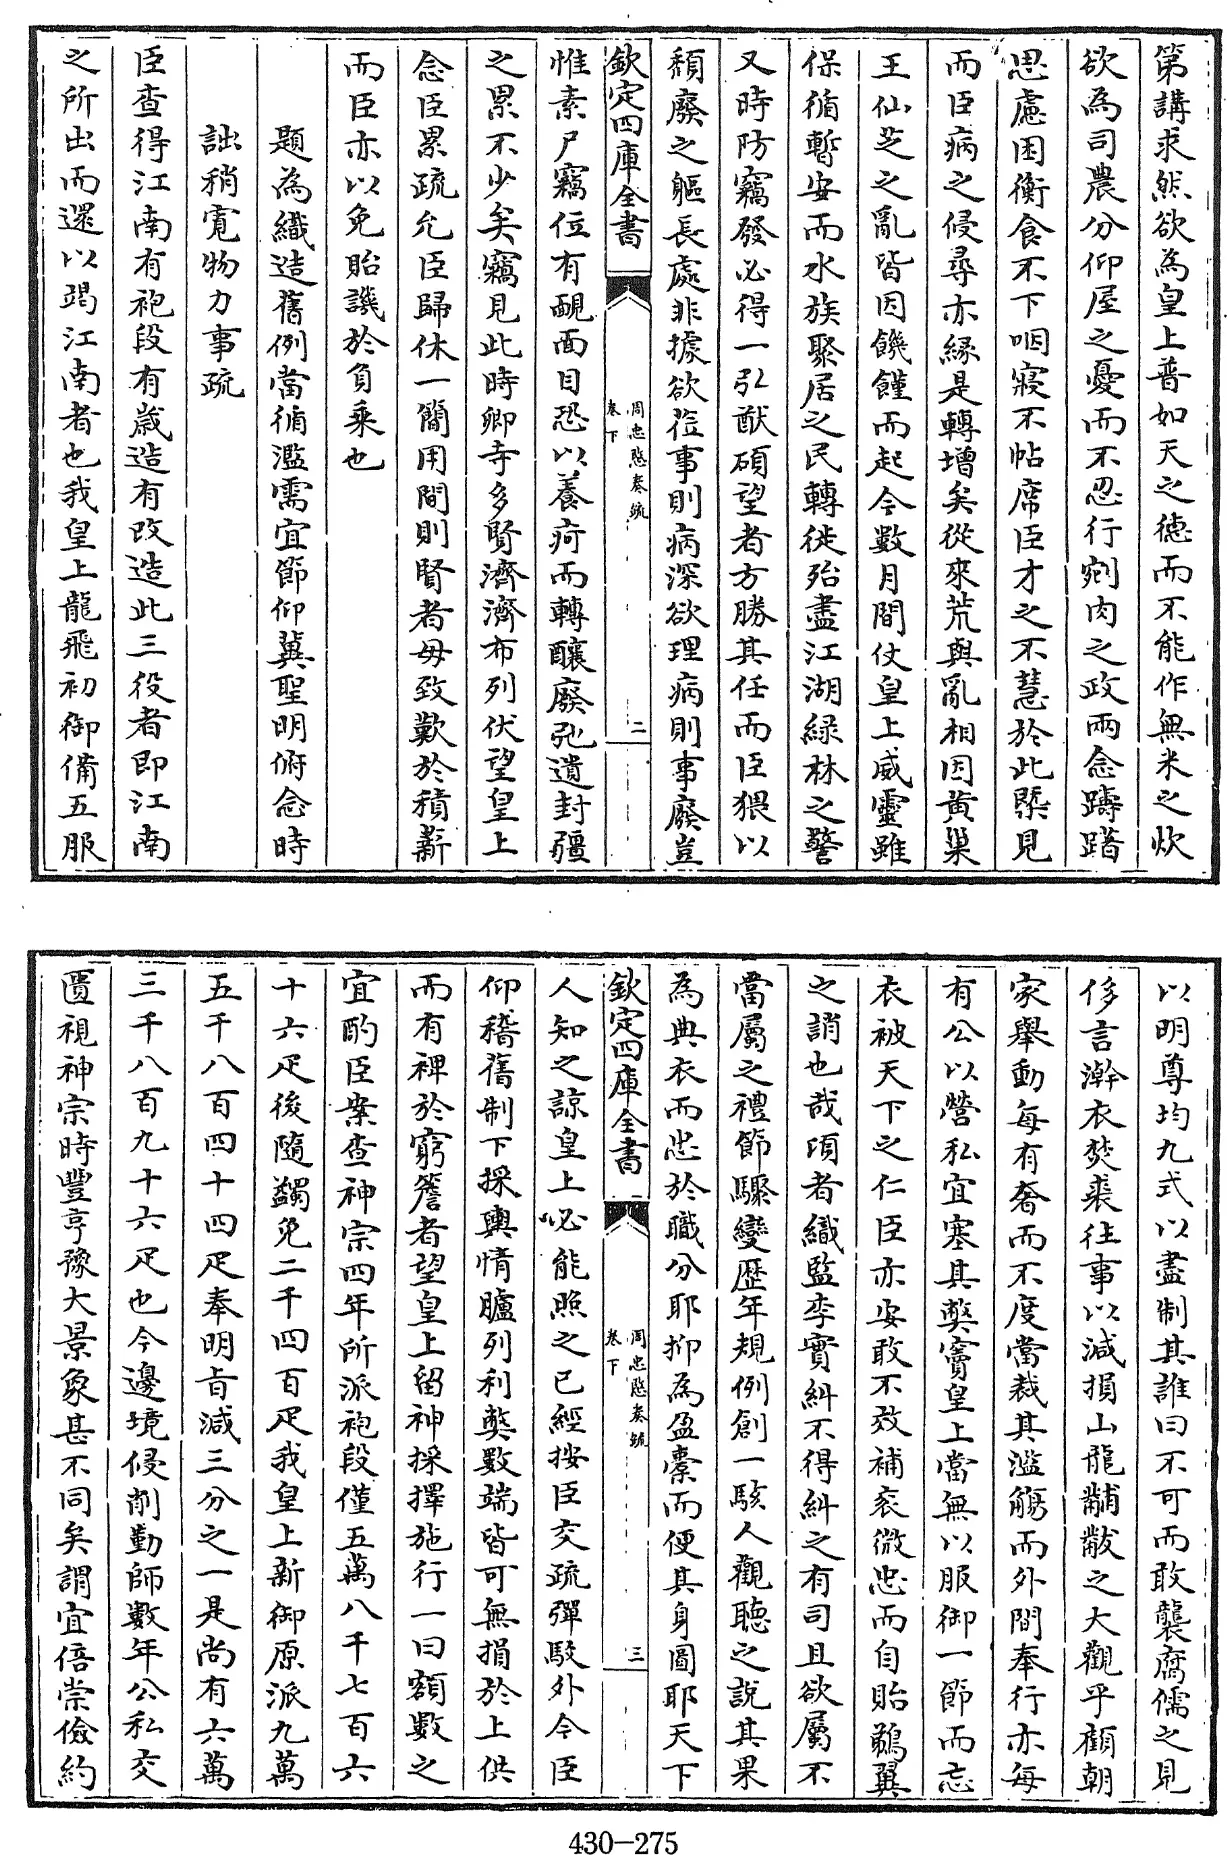 第講求然欲為皇上普如天之德而不能作無米之炊
欲為司農分仰屋之憂而不忍行剜肉之政兩念躊躇
思慮困衡食不下咽寢不帖席臣才之不慧於此槩見
而臣病之侵尋亦緣是轉增矣從來荒與亂相因黃巢
王仙芝之亂皆因饑饉而起今數月間仗皇上威靈雖
保循暫安而水族聚居之民轉徙殆盡江湖緑林之警
又時防竊發必得一引猷碩望者方勝其任而臣猥以
頹廢之軀長處非據欲蒞事則病深欲理病則事廢豈
欽定四庫全書
周忠愍奏疏
卷下
二
惟素尸竊位有靦面目恐以養疴而轉釀廢弛遺封疆
之累不少矣竊見此時卿寺多賢濟濟布列伏望皇上
念臣累疏允臣歸休一簡用間則賢者毋致歎於積薪
而臣亦以免貽譏於負乘也
題為織造舊例當循濫需宜節仰冀聖明俯念時
詘稍寛物力事疏
臣查得江南有袍段有歲造有改造此三役者即江南
之所出而還以竭江南者也我皇上龍飛初御備五服
以明尊均九式以盡制其誰曰不可而敢襲腐儒之見
侈言澣衣焚裘往事以減損山龍黼黻之大觀乎顧朝
家舉動每有奢而不度當裁其濫觴而外間奉行亦每
有公以營私宜塞其弊竇皇上當無以服御一節而忘
衣被天下之仁臣亦安敢不效補衮微忠而自貽鵜翼
之誚也哉頃者織監李實糾不得糾之有司且欲屬不
當屬之禮節驟變歴年規例創一駭人觀聽之說其果
為典衣而忠於職分耶抑為盈橐而便其身圖耶天下
欽定四庫全書
周忠愍奏疏
卷下
三
人知之諒皇上必能照之已經按臣交疏彈駁外今臣
仰稽舊制下採輿情臚列利弊數端皆可無損於上供
而有裨於窮簷者望皇上留神採擇施行一曰額數之
宜酌臣案查神宗四年所派袍段僅五萬八千七百六
十六疋後隨蠲免二千四百疋我皇上新御原派九萬
五千八百四十四疋奉明旨減三分之一是尚有六萬
三千八百九十六疋也今邊境侵削勤師數年公私交
匱視神宗時豐亨豫大景象甚不同矣謂宜倍崇儉約
430-275